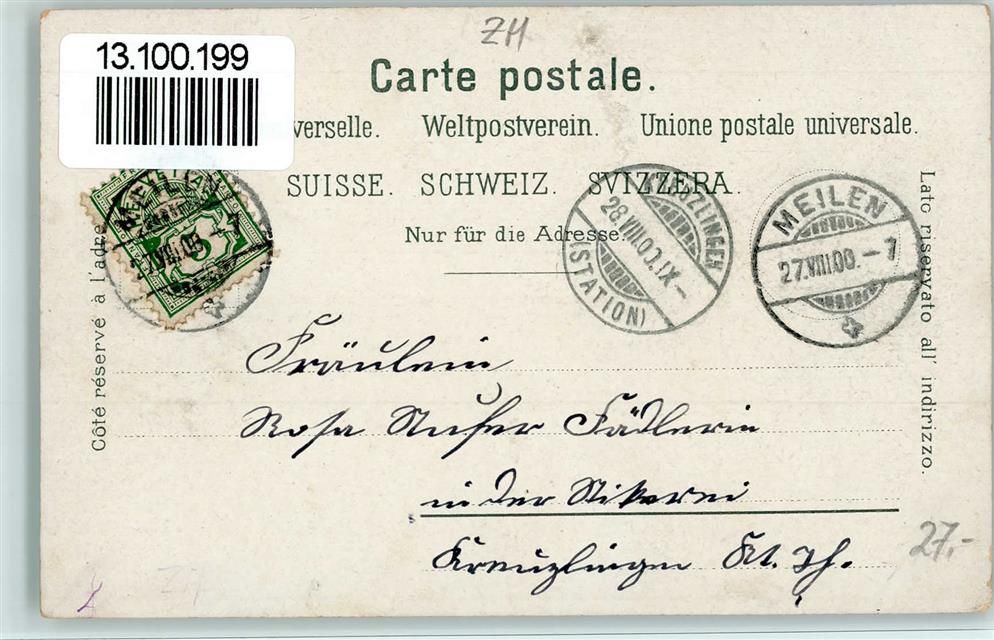 ZH
13.100.199
Carte postale.
verselle. Weltpostverein. Unione postale universale.
SUISSE. SCHWEIZ. SVIZZERA.
Nur für die Adresse.
Côté réservé à l'adre
Lato riservato all' indirizzo.
MEILEN
5
KREUZLINGEN
28.VIII.00.IX-
(STATION)
MEILEN
27.VIII.00.-7
Fräulein
Rosa Fädlerin
in der Stikerei
Kreuzlingen Kt. Th.
27.-